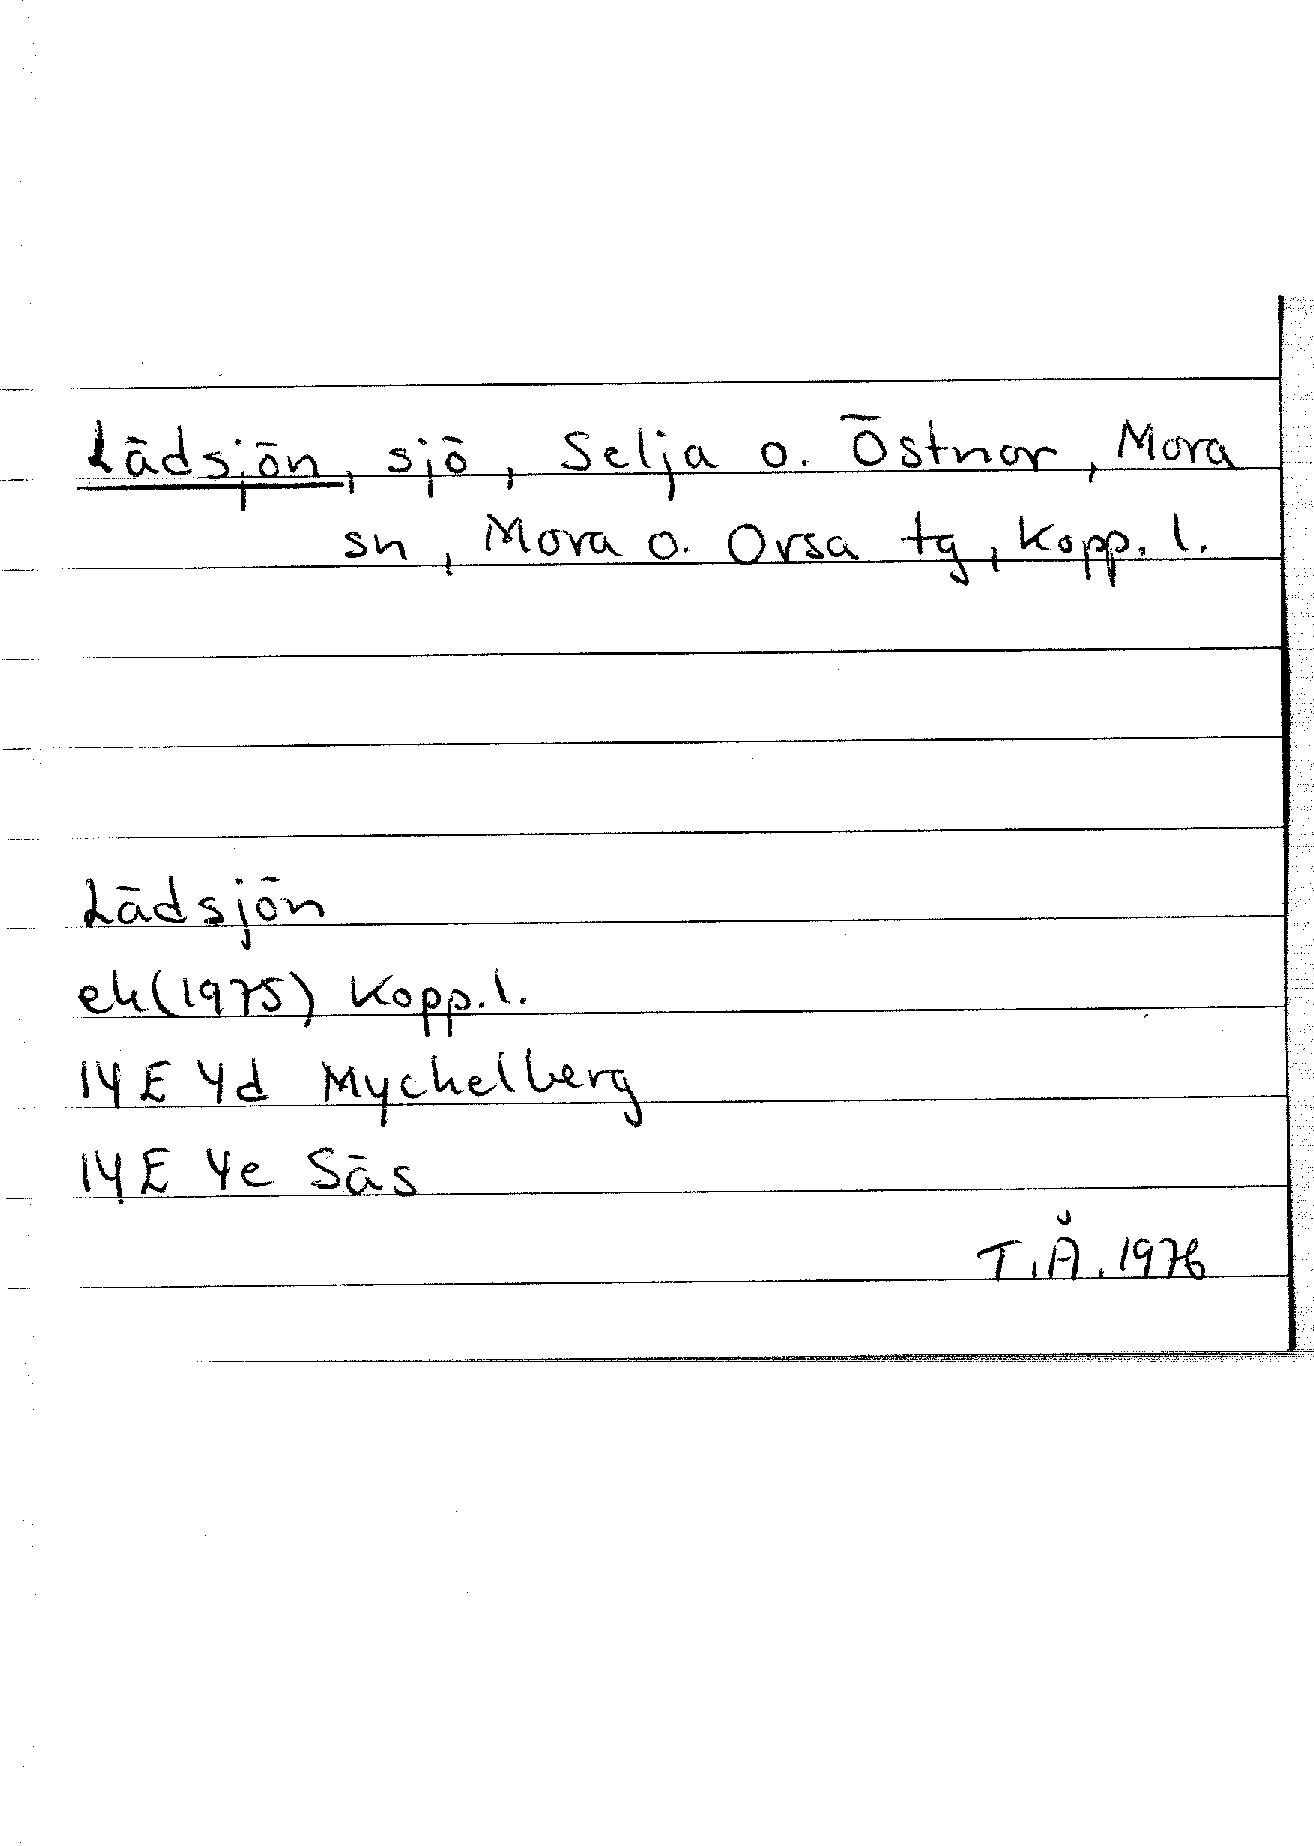 Lädsjön, sjö, Selja o. Östnor, Mora
sn, Mora o. Orsa tg, Kopp. l.
Lädsjön
ek(1975) Kopp. l.
14E 4d Myckelberg
14E 4e Säs
T.Å. 1976